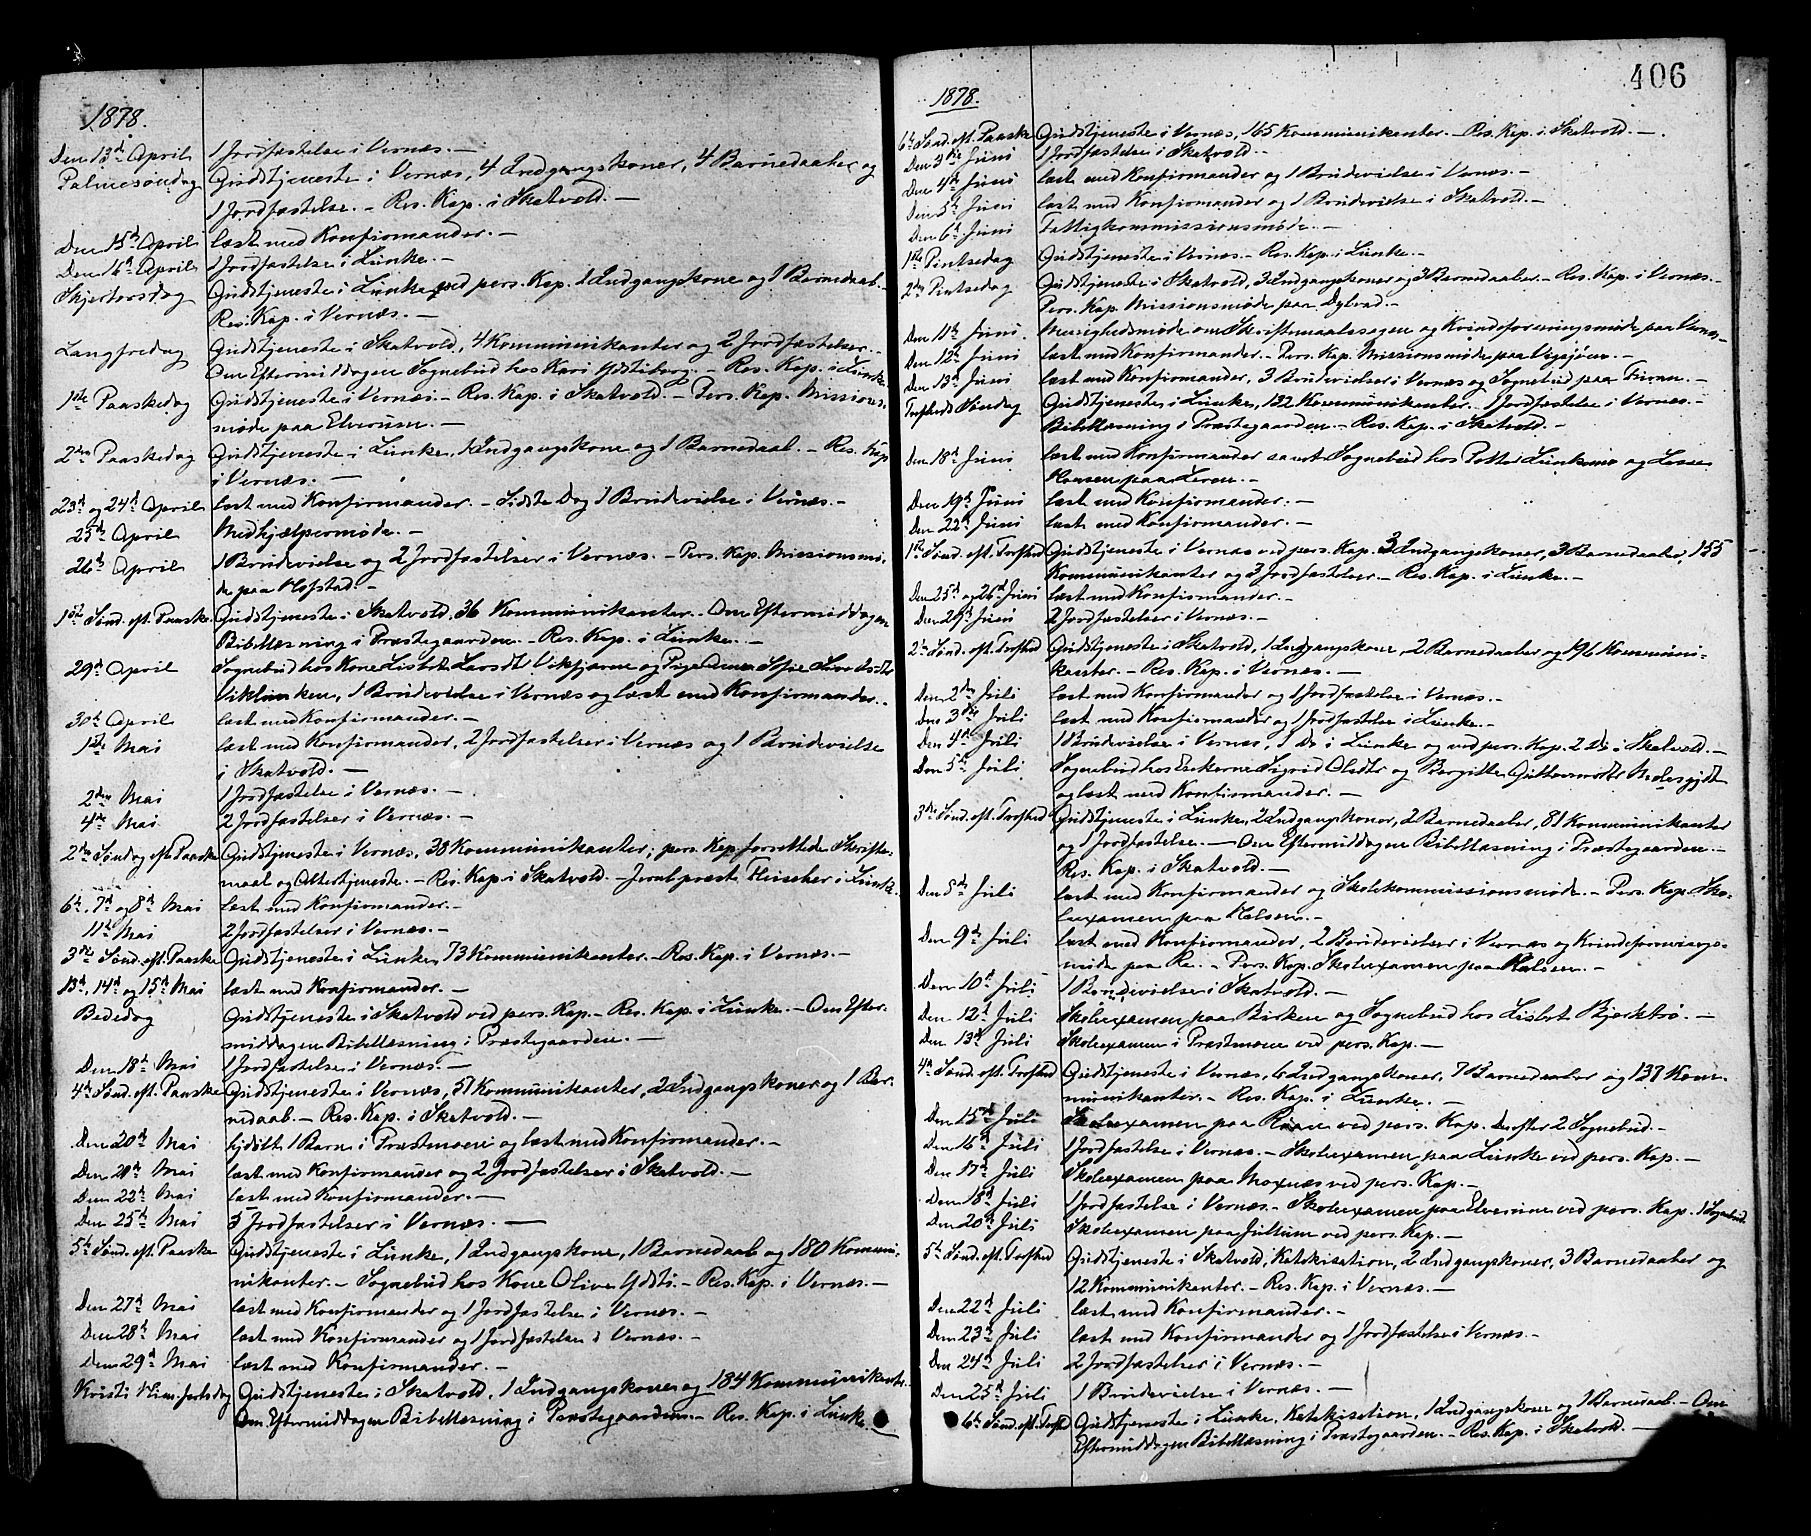 1878.
Den 13de April 1 Jordfæstelse i Vernæs. —
Palmesøndag Gudstjeneste i Vernæs, 4 Indgangskoner, 4 Barnedaaber og
1 Jordfæstelse. – Res. Kap. i Skatvold. —
Den 15de April læst med Konfirmander. —
Den 16de April 1 Jordfæstelse i Lunke. —
Skjertorsdag Gudstjeneste i Lunke ved pers. Kap. 1 Indgangskone og 1 Barnedaab. –
Res. Kap. i Vernæs. —
Langfredag Gudstjeneste i Skatvold, 4 Kommunikanter og 2 Jordfæstelser. –
Om Eftermiddagen Sognebud hos Kari Ydstiborg. – Res. Kap. i Lunke.
1ste Paaskedag Gudstjeneste i Vernæs. – Res. Kap. i Skatvold. – Pers. Kap. Missions-
møde paa Elverum. —
2den Paaskedag Gudstjeneste i Lunke, 1 Indgangskone og 1 Barnedaab. – Res. Kap.
i Vernæs. —
23de og 24de April læst med Konfirmander. – Sidste Dag 1 Brudevielse i Vernæs. –
25de April Medhjælpermøde. —
26de April 1 Brudevielse og 2 Jordfæstelser i Vernæs. – Pers. Kap. Missionsmø-
de paa Hofstad. —
1ste Sønd. eft. Paaske Gudstjeneste i Skatvold, 36 Kommunikanter. – Om Eftermiddagen
Bibellæsning i Præstegaarden. – Res. Kap. i Lunke. —
29de April Sognebud hos Kone Lisbet Larsdt Vikfjærne og Pige
Viklunken, 1 Brudevielse i Vernæs og læst med Konfirmander. –
30te April læst med Konfirmander. —
1ste Mai læst med Konfirmander, 2 Jordfæstelser i Vernæs og 1 Brudevielse
i Skatvold. —
2den Mai 1 Jordfæstelse i Vernæs. —
4de Mai 2 Jordfæstelser i Vernæs. —
2den Søndag efter Paaske Gudstjeneste i Vernæs, 38 Kommunikanter; pers. Kap. forrettede Skrifte-
maal og Altertjeneste. – Res. Kap. i Skatvold. – Fleischer i Lunke.
6te, 7de og 8de Mai læst med Konfirmander. —
11te Mai 2 Jordfæstelser i Vernæs. —
3die Sønd. eft. Paaske Gudstjeneste i Lunke, 73 Kommunikanter. – Res. Kap. i Vernæs. —
13de, 14de og 15de Mai læst med Konfirmander. —
Bededag Gudstjeneste i Skatvold ved pers. Kap. – Res. Kap. i Lunke. – Om Efter-
middagen Bibellæsning i Præstegaarden. —
Den 18de Mai 1 Jordfæstelse i Vernæs. —
4de Sønd. eft. Paaske Gudstjeneste i Vernæs, 51 Kommunikanter, 2 Indgangskoner og 1 Bar-
nedaab. – Res. Kap. i Skatvold. —
Den 20de Mai hjdøbt 1 Barn i Præstmoen og læst med Konfirmander. —
Den 21de Mai læst med Konfirmander og 2 Jordfæstelser i Skatvold. —
Den 22de Mai læst med Konfirmander. —
Den 25de Mai 5 Jordfæstelser i Vernæs. —
5te Sønd. eft. Paaske Gudstjeneste i Lunke, 1 Indgangskone, 1 Barnedaab og 180 Kommu-
nikanter. – Sognebud hos Kone Oline Ydsti. – Res. Kap. i Vernæs. —
Den 27de Mai læst med Konfirmander og 1 Jordfæstelse i Vernæs. —
Den 28de Mai læst med Konfirmander og 1 Jordfæstelse i Vernæs. —
Den 29de Mai læst med Konfirmander. —
Kristi Him.fartsdag Gudstjeneste i Skatvold, 1 Indgangskone og 184 Kommunikanter.
Om Eftermiddagen Bibellæsning i Præstegaarden. – Res. Kap. i Lunke. —
406
1878.
6te Sønd. eft. Paaske Gudstjeneste i Vernæs, 165 Kommunikanter. – Res. Kap. i Skatvold. —
Den 3die Juni 1 Jordfæstelse i Skatvold. –
Den 4de Juni læst med Konfirmander og 1 Brudevielse i Vernæs. –
Den 5te Juni læst med Konfirmander og 1 Brudevielse i Skatvold. —
Den 6te Juni Fattigkommissionsmøde. —
1ste Pintsedag Gudstjeneste i Vernæs. – Res. Kap. i Lunke. –
2den Pintsedag Gudstjeneste i Skatvold, 3 Indgangskoner og 3 Barnedaaber. – Res. Kap. i Vernæs. –
Pers. Kap. Missionsmøde paa –
Den 11te Juni Menighedsmøde om Skriftemaalssagen og Kvindeforeningsmøde paa Vernæs. –
Den 12te Juni læst med Konfirmander. – Pers. Kap. Missionsmøde paa –
Den 13de Juni læst med Konfirmander, 3 Brudevielser i Vernæs og Sognebud paa —
Trefolds Søndag Gudstjeneste i Lunke, 122 Kommunikanter. 1 Jordfæstelse i Vernæs. –
Bibellæsning i Præstegaarden. – Res. Kap. i Skatvold. –
Den 18de Juni læst med Konfirmander samt Sognebud hos Petter Lunkemo og Lasse
Hansen paa Leren. –
Den 19de Juni læst med Konfirmander. —
Den 22de Juni læst med Konfirmander. —
1ste Sønd. eft. Trefhed Gudstjeneste i Vernæs ved pers. Kap. 3 Indgangskoner, 3 Barnedaaber, 155
Kommunikanter og 3 Jordfæstelser. – Res. Kap. i Lunke. —
Den 25de og 26de Juni læst med Konfirmander. —
Den 29de Juni 2 Jordfæstelser i Vernæs. —
2den Sønd. eft. Trefhed Gudstjeneste i Skatvold, 1 Indgangskone, 2 Barnedaaber og 196 Kommuni-
kanter. – Res. Kap. i Vernæs. —
Den 2den Juli læst med Konfirmander og 1 Jordfæstelse i Vernæs. —
Den 3die Juli læst med Konfirmander og 1 Jordfæstelse i Lunke. —
Den 4de Juli 1 Brudevielse i Vernæs, 1 Do i Lunke og ved pers. Kap. 2 Do i Skatvold. —
Den 5te Juli Sognebud hos Enkerne Sigrid Olsdtr og Bergitte Guttormsdtr
og læst med Konfirmander. —
3die Sønd. eft. Trefhed Gudstjeneste i Lunke, 2 Indgangskoner, 2 Barnedaaber, 81 Kommunikanter
og 1 Jordfæstelse. — Om Eftermiddagen Bibellæsning i Præstegaarden. –
Res. Kap. i Skatvold. —
Den 8de Juli læst med Konfirmander og Skolekommissionsmøde. – Pers. Kap. Sko-
leexamen paa –
Den 9de Juli læst med Konfirmander, 2 Brudevielser i Vernæs og Kvindeforenings-
møde paa Re. – Pers. Kap. Skoleexamen paa –
Den 10de Juli 1 Brudevielse i Skatvold. —
Den 12te Juli Skoleexamen paa Birken og Sognebud hos Lisbet Bjerktrø. —
Den 13de Juli Skoleexamen i Præstmoen ved pers. Kap. —
4de Sønd. eft. Trefhed Gudstjeneste i Vernæs, 6 Indgangskoner, 7 Barnedaaber og 137 Kom-
munikanter. – Res. Kap. i Lunke. —
Den 15de Juli Skoleexamen paa ved pers. Kap. derefter 2 Sognebud. –
Den 16de Juli 1 Jordfæstelse i Vernæs. – Skoleexamen paa Lunke ved pers. Kap. –
Den 17de Juli Skoleexamen paa Moxnæs ved pers. Kap. –
Den 18de Juli 1 Jordfæstelse i Vernæs. – Skoleexamen paa Elverum ved pers. Kap. 1 Sognebud.
Den 20de Juli Skoleexamen paa Jullum ved pers. Kap. —
5te Sønd. eft. Trefhed Gudstjeneste i Skatvold, Katekisation, 2 Indgangskoner, 3 Barnedaaber og
12 Kommunikanter. – Res. Kap. i Vernæs. —
Den 22de Juli læst med Konfirmander. —
Den 23de Juli læst med Konfirmander og 1 Jordfæstelse i Vernæs. —
Den 24de Juli 2 Jordfæstelser i Vernæs. —
Den 25de Juli 1 Brudevielse i Vernæs. —
6te Sønd. eft. Trefhed Gudstjeneste i Lunke, Katekisation, 1 Indgangskone og 1 Barnedaab. – Om
Eftermiddagen Bibellæsning i Præstegaarden. – Res. Kap. i Skatvold. —